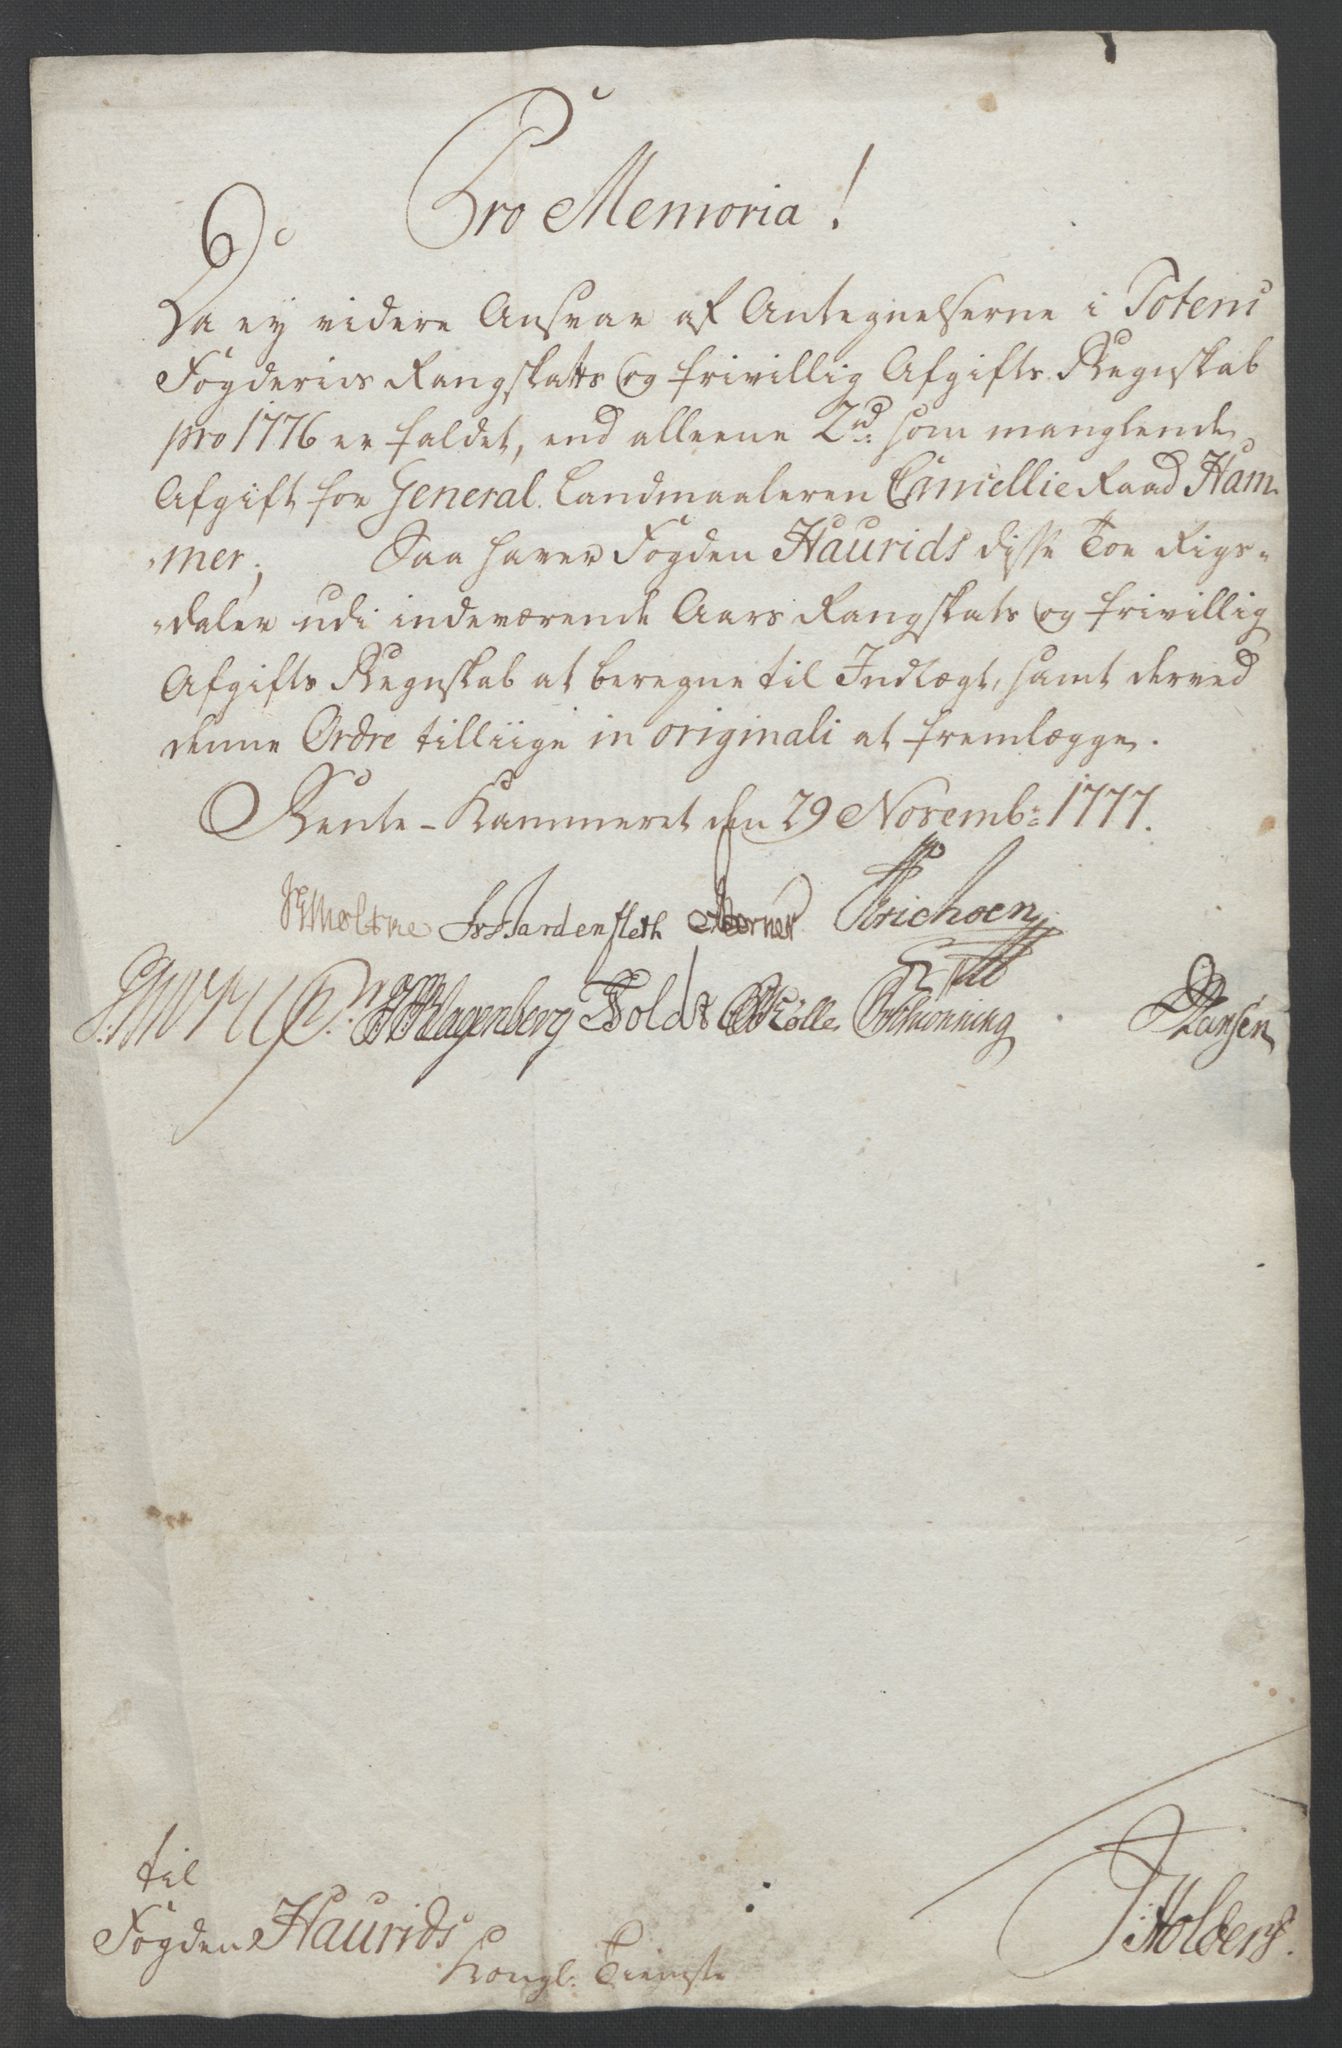 Pro Memoria!
Da ey videre Ansvar af Antegnelserne i Totens
Fogderies Rangskatts og frivillig Afgifts Regnskab
pro 1776 er faldet, end alleene 2rd: som manglende
Afgift for General Landmaaleren Cancellie Raad Ham-
-mer; Saa haver Fogden Haurids disse Toe Rigs-
-daler udi indeværende Aars Rangskats og frivillig
Afgifts Regnskab at beregne til Indtægt, samt derved
denne Ordre tilliige in originali at fremlægge.
Rente-Kammeret den 29 Novemb: 1777.
Moltke Fr. Wardenfleth Berner Erichsen
Klagenberg Toldt Rølle Schønning Hansen
til
Fogden Haurids
Kongl: Tieniste
Holberg.